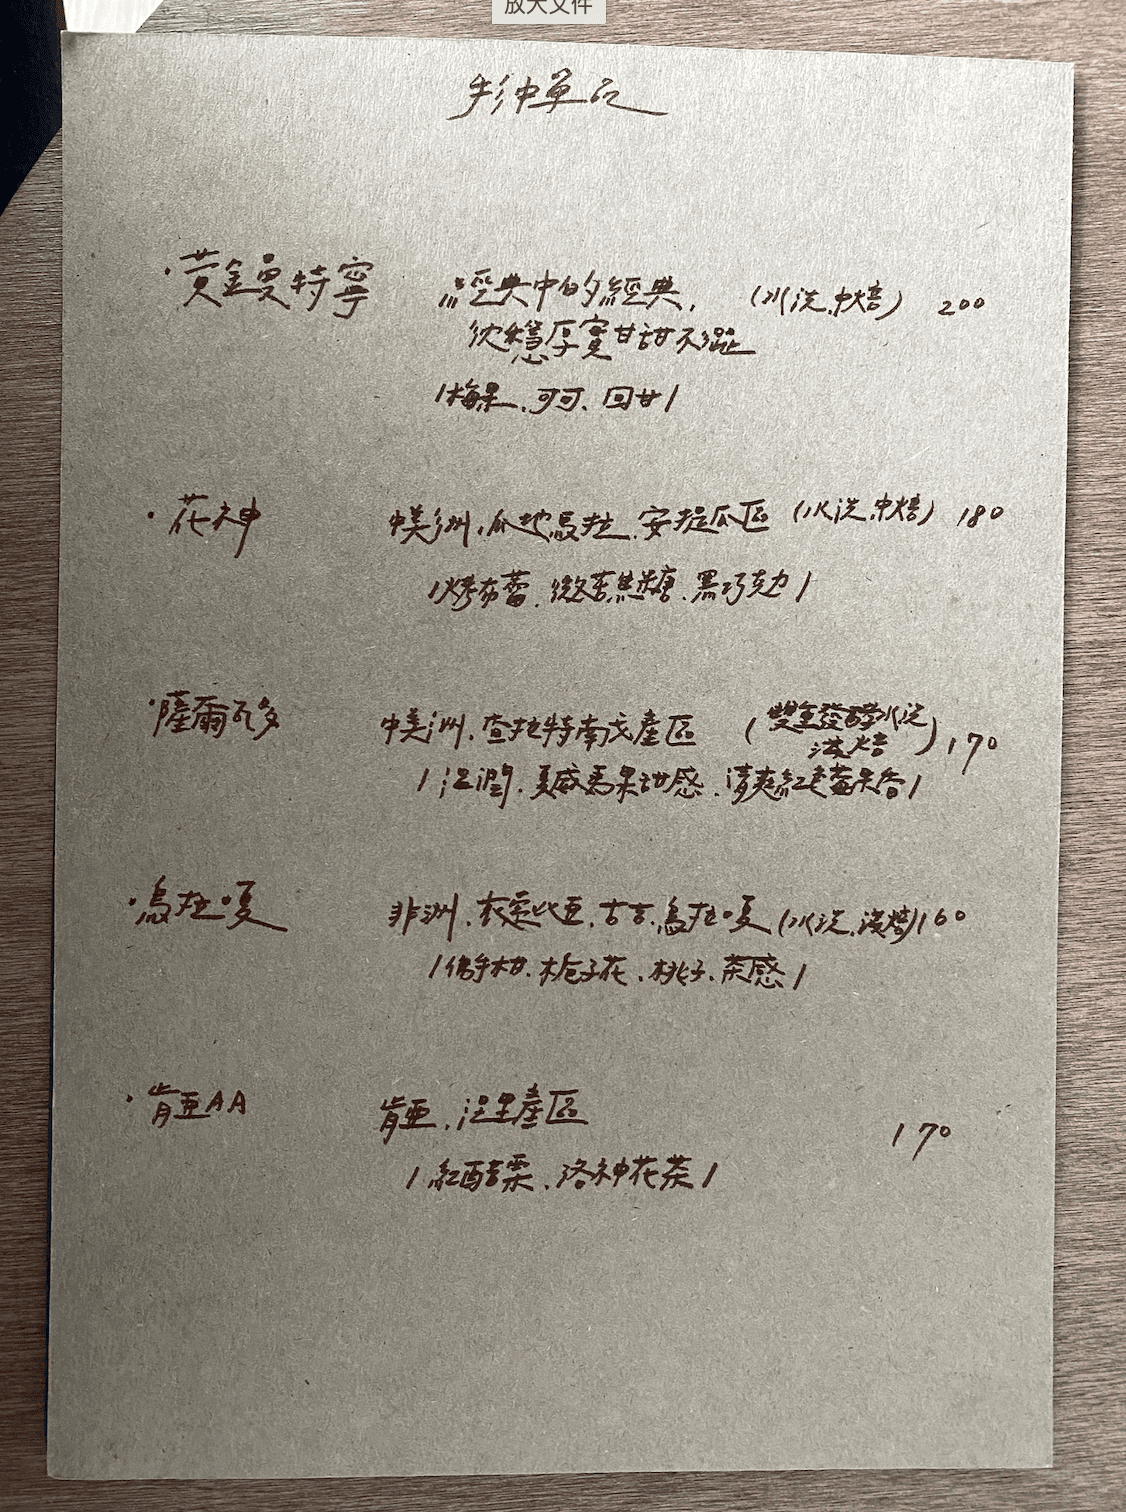 放大文件
手沖單品
·黃金曼特寧 經典中的經典, (水洗.中焙) 200
沈穩厚實甘甜不澀
/梅果、可可、回甘/
·花神 中美洲,瓜地馬拉.安提瓜區 (水洗.中焙) 180
/烤布蕾.微苦焦糖.黑巧克力/
·薩爾瓦多 中美洲.查拉特南戈產區 (雙重發酵水洗 淺焙) 170
/溼潤.夏威夷果甜感.清爽紅色莓果香/
·烏拉嘎 非洲.衣索比亞.古吉.烏拉嘎 (水洗.淺焙) 160
/佛手柑.梔子花.桃子.茶感/
·肯亞AA 肯亞.涅里產區 170
/紅醋栗.洛神花茶/